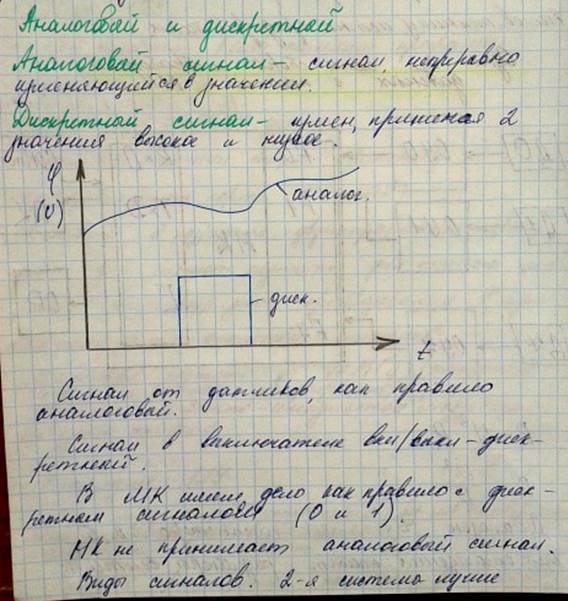 Аналоговый и дискретный
Аналоговый сигнал - сигнал, непрерывно
изменяющийся в значении.
Дискретный сигнал - измен, принимая 2
значения высокое и низкое.
φ
(U)
аналог.
диск.
t
Сигнал от датчиков, как правило
аналоговый.
Сигнал в выключателе вкл/выкл - диск-
ретный.
В МК имеем дело как правило с диск-
ретным сигналом (0 и 1).
МК не принимает аналоговый сигнал.
Виды сигналов. 2-я система лучше